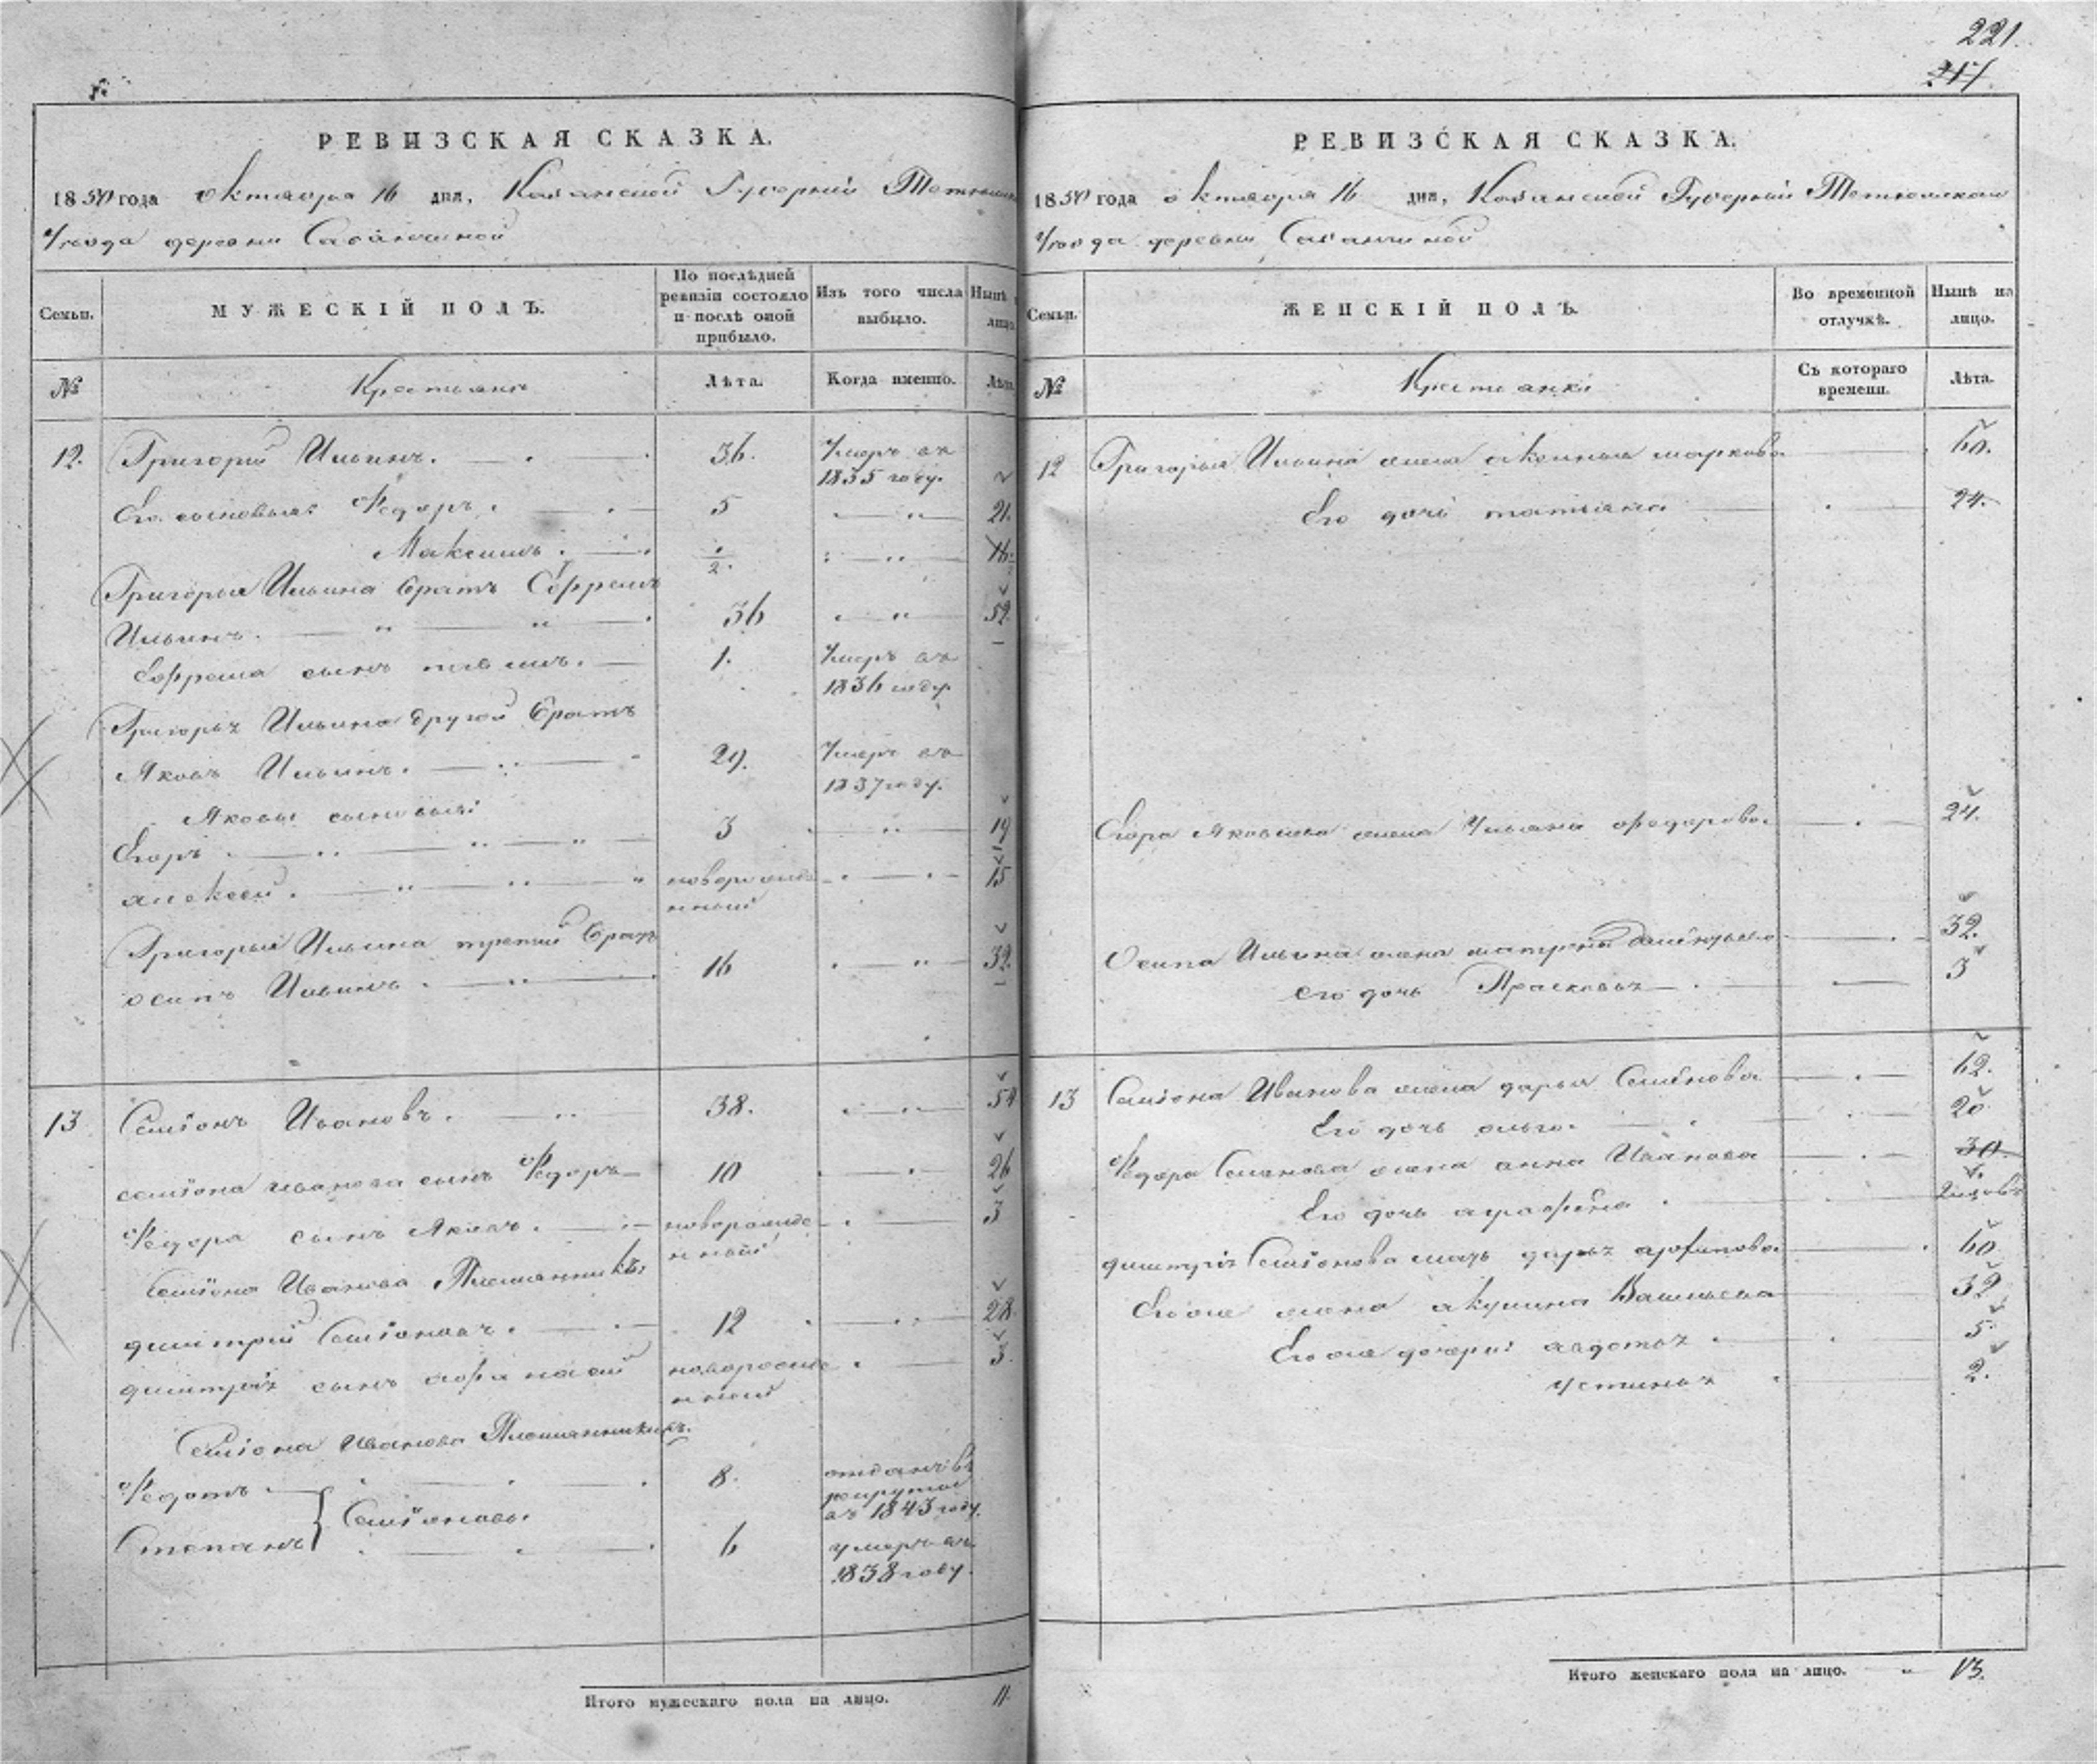 221.
217.
РЕВИЗСКАЯ СКАЗКА.
1850 года октября 16 дня, Казанской Губерніи Тетюш
уѣзда деревни Сабанчиной
Семьи.
МУЖЕСКІЙ ПОЛЪ.
По послѣдней ревизіи состояло и послѣ оной прибыло.
Изъ того числа выбыло.
Нынѣ на лицо.
№
Крестьяне
Лѣта.
Когда именно.
Лѣта.
12. Григорій Ильинъ. 36. Умеръ въ 1835 году.
Его сыновья: Ѳедоръ. 5 21.
Максимъ. 1/2. 16.
Григорья Ильина братъ Ефремъ
Ильинъ. 36 52
Ефрема сынъ 1. Умеръ въ 1836 году.
Григорья Ильина другой братъ
Яковъ Ильинъ. 29. Умеръ въ 1837 году.
Якова сыновья:
Егоръ. 3 19
алексей. новорожденный 15
Григорья Ильина третий братъ
осипъ Ильинъ. 16 32.
13 Семіонъ Ивановъ. 38. 54
семіона иванова сынъ Ѳедоръ 10 26
Ѳедора сынъ Яковъ. новорожденный 3
Семіона Иванова Племянникъ:
димитрій Семіоновъ. 12 28.
димитрія сынъ афанасий новорожденный 3.
Семіона Иванова Племянники.
Ѳедотъ 8. отданъ въ рекруты въ 1843 году.
Степанъ } Семіоновы 6 умеръ въ 1838 году.
Итого мужескаго пола на лицо. 11.
РЕВИЗСКАЯ СКАЗКА.
1850 года октября 16 дня, Казанской Губерніи Тетюшскаго
уѣзда деревни Сабанчиной
Семьи.
ЖЕНСКІЙ ПОЛЪ.
Во временной отлучкѣ.
Нынѣ на лицо.
№
Крестьянки
Съ котораго времени.
Лѣта.
12 Григорья Ильина жена аксинья маркова 60.
Его дочь татьяна 24.
Егора Яковлева жена Ульяна федорова. 24.
Осипа Ильина жена матрена 32.
его дочь Прасковья 3
13 Семіона Иванова жена дарья Семіонова 62.
Его дочь ольга. 20.
Ѳедора Семионова жена анна Иванова 30.
Его дочь аграфена
димитрія Семіонова мать дарья архипова. 60
Его же жена акулина Васильева 32
Его же дочери: авдотья 5
устинья 2.
Итого женскаго пола на лицо. 13.